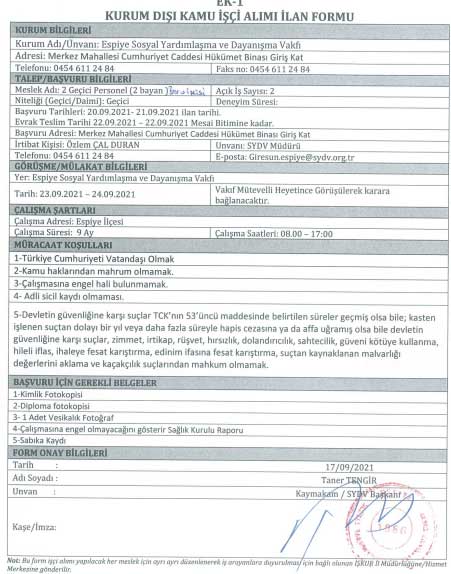 EK-1
KURUM DIŞI KAMU İŞÇİ ALIMI İLAN FORMU
KURUM BİLGİLERİ
Kurum Adı/Ünvanı: Espiye Sosyal Yardımlaşma ve Dayanışma Vakfı
Adresi: Merkez Mahallesi Cumhuriyet Caddesi Hükümet Binası Giriş Kat
Telefonu: 0454 611 24 84 Faks no: 0454 611 24 84
TALEP/BAŞVURU BİLGİLERİ
Meslek Adı: 2 Geçici Personel (2 bayan Açık İş Sayısı: 2
Niteliği (Geçici/Daimi): Geçici Deneyim Süresi:
Başvuru Tarihleri: 20.09.2021- 21.09.2021 ilan tarihi.
Evrak Teslim Tarihi 22.09.2021 – 22.09.2021 Mesai Bitimine kadar.
Başvuru Adresi: Merkez Mahallesi Cumhuriyet Caddesi Hükümet Binası Giriş Kat
İrtibat Kişisi: Özlem ÇAL DURAN Unvanı: SYDV Müdürü
Telefonu: 0454 611 24 84 E-posta: Giresun.espiye@sydv.org.tr
GÖRÜŞME/MÜLAKAT BİLGİLERİ
Yer: Espiye Sosyal Yardımlaşma ve Dayanışma Vakfı
Tarih: 23.09.2021 – 24.09.2021 Vakıf Mütevelli Heyetince Görüşülerek karara
bağlanacaktır.
ÇALIŞMA ŞARTLARI
Çalışma Adresi: Espiye İlçesi
Çalışma Süresi: 9 Ay Çalışma Saatleri: 08.00 – 17:00
MÜRACAAT KOŞULLARI
1-Türkiye Cumhuriyeti Vatandaşı Olmak
2-Kamu haklarından mahrum olmamak.
3-Çalışmasına engel hali bulunmamak.
4- Adli sicil kaydı olmaması.
5-Devletin güvenliğine karşı suçlar TCK'nın 53'üncü maddesinde belirtilen süreler geçmiş olsa bile; kasten
işlenen suçtan dolayı bir yıl veya daha fazla süreyle hapis cezasına ya da affa uğramış olsa bile devletin
güvenliğine karşı suçlar, zimmet, irtikap, rüşvet, hırsızlık, dolandırıcılık, sahtecilik, güveni kötüye kullanma,
hileli iflas, ihaleye fesat karıştırma, edinim ifasına fesat karıştırma, suçtan kaynaklanan malvarlığı
değerlerini aklama ve kaçakçılık suçlarından mahkum olmamak.
BAŞVURU İÇİN GEREKLİ BELGELER
1-Kimlik Fotokopisi
2-Diploma fotokopisi
3- 1 Adet Vesikalık Fotoğraf
4-Çalışmasına engel olmayacağını gösterir Sağlık Kurulu Raporu
5-Sabıka Kaydı
FORM ONAY BİLGİLERİ
Tarih : 17/09/2021
Adı Soyadı : Taner TENGİR
Unvan : Kaymakam / SYDV Başkanı
Kaşe/İmza:
Not: Bu form işçi alımı yapılacak her meslek için ayrı ayrı düzenlenerek iş arayanlara duyurulması için bağlı olunan İŞKUR İl Müdürlüğüne/Hizmet
Merkezine gönderilir.